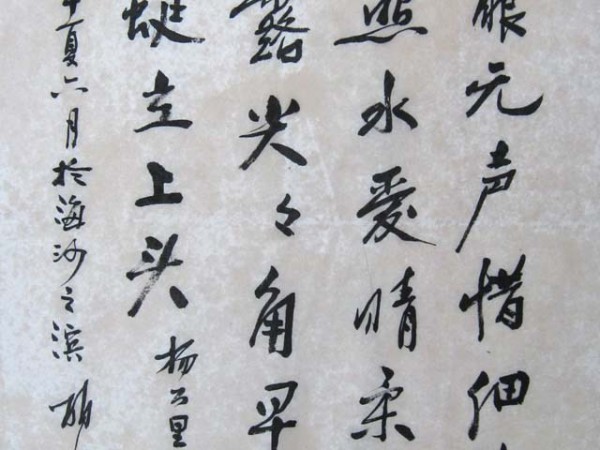 眼无声惜细
照水爱晴柔
露尖々角早
蜓立上头
杨万里
夏六月於海沙之滨